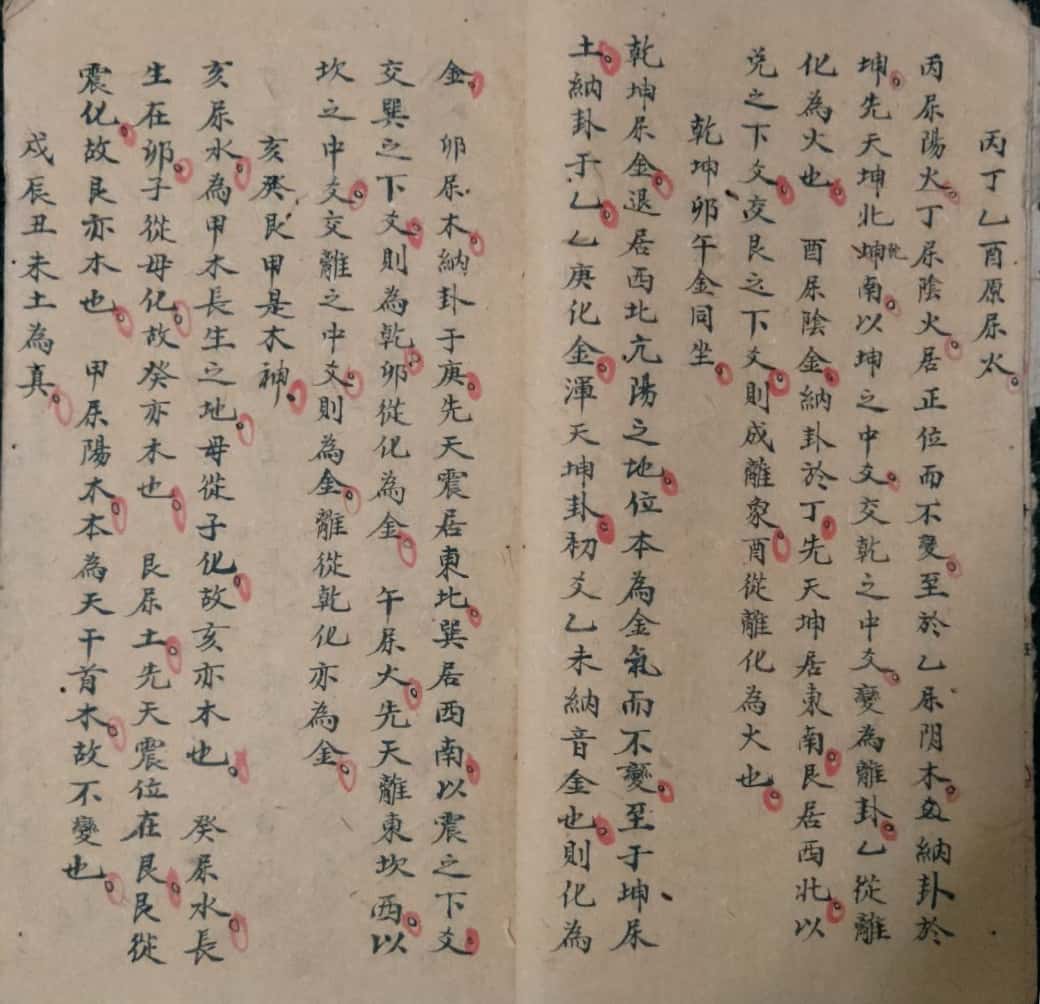 丙丁乙酉原屬火。
丙屬陽火。丁屬陰火。居正位而不變。至於乙屬阴木。納卦於
坤。先天坤北乾坤南。以坤之中爻。交乾之中爻。變為離卦。乙從離
化為火也。 酉屬陰金。納卦於丁。先天坤居東南。艮居西北。以
兌之下爻。交艮之下爻。則成離象。酉從離化為火也。
乾坤卯午金同坐。
乾坤屬金。退居西北亢陽之地。位本為金氣而不變。至于坤屬
土。納卦于乙。乙庚化金。渾天坤卦。初爻乙未納音金也。則化為
金。 卯屬木。納卦于庚。先天震居東北。巽居西南。以震之下爻。
交巽之下爻。則為乾。卯從化為金。 午屬火。先天離東坎西。以
坎之中爻。交離之中爻。則為金。離從乾化亦為金。
亥癸艮甲是木神。
亥屬水。為甲木長生之地。母從子化。故亥亦木也。 癸屬水。長
生在卯。子從母化。故癸亦木也。 艮屬土。先天震位在艮。艮從
震化。故艮亦木也。 甲屬陽木。本為天干首木。故不變也。
戌辰丑未土為真。